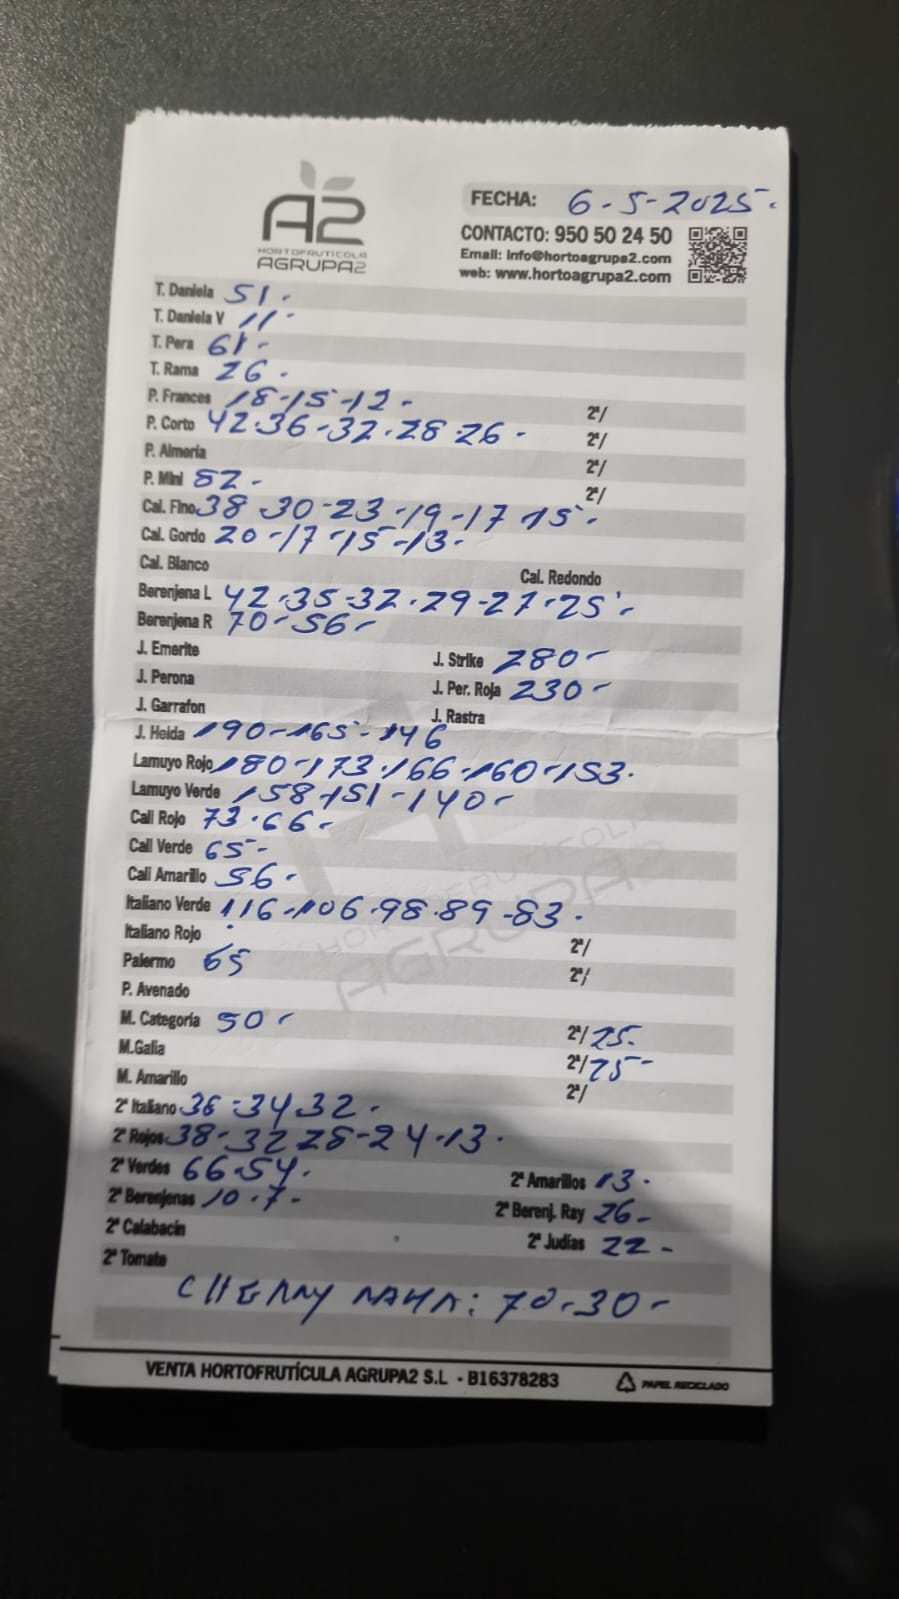 A2
HORTOFRUTICOLA
AGRUPA2
FECHA: 6-5-2025.
CONTACTO: 950 50 24 50
Email: info@hortoagrupa2.com
web: www.hortoagrupa2.com
T. Daniela 51.
T. Daniela V 11-
T. Pera 61-
T. Rama 26.
P. Frances 18-15-12- 2ª/
P. Corto 42.36-32.28.26- 2ª/
P. Almeria 2ª/
P. Mini 52- 2ª/
Cal. Fino 38-30-23-19-17-15-
Cal. Gordo 20-17-15-13-
Cal. Blanco Cal. Redondo
Berenjena L 42.35-32.29-27.25-
Berenjena R 70-56-
J. Emerite J. Strike 280-
J. Perona J. Per. Roja 230-
J. Garrafon J. Rastra
J. Helda 190-165-146
Lamuyo Rojo 180-173.166-160-153.
Lamuyo Verde 158-151-140-
Cali Rojo 73.66-
Cali Verde 65-
Cali Amarillo 56.
Italiano Verde 116-106.98.89-83.
Italiano Rojo 2ª/
Palermo 65 2ª/
P. Avenado
M. Categoría 50- 2ª/ 25.
M.Galia 2ª/ 25-
M. Amarillo 2ª/
2ª Italiano 36-34 32-
2ª Rojos 38-32 28-24-13.
2ª Verdes 66-54. 2ª Amarillos 13.
2ª Berenjenas 10.7- 2ª Berenj. Ray 26-
2ª Calabacín 2ª Judías 22-
2ª Tomate
CHERRY RAMA: 70.30-
VENTA HORTOFRUTÍCULA AGRUPA2 S.L - B16378283
PAPEL RECICLADO